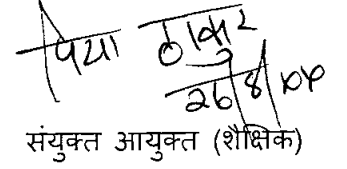 पिया ठाकुर
26/8/04
संयुक्त आयुक्त (शैक्षिक)